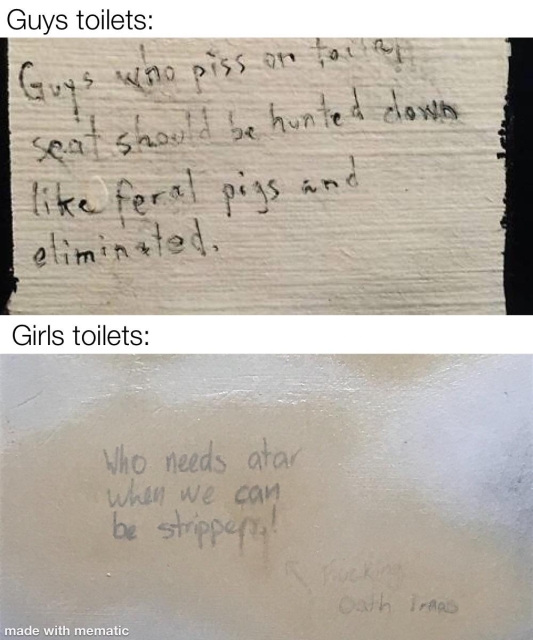 Guys toilets:
Guys who piss on toilet
seat should be hunted down
like feral pigs and
eliminated.
Girls toilets:
Who needs atar
when we can
be strippers!
Fucking
Oath
made with mematic